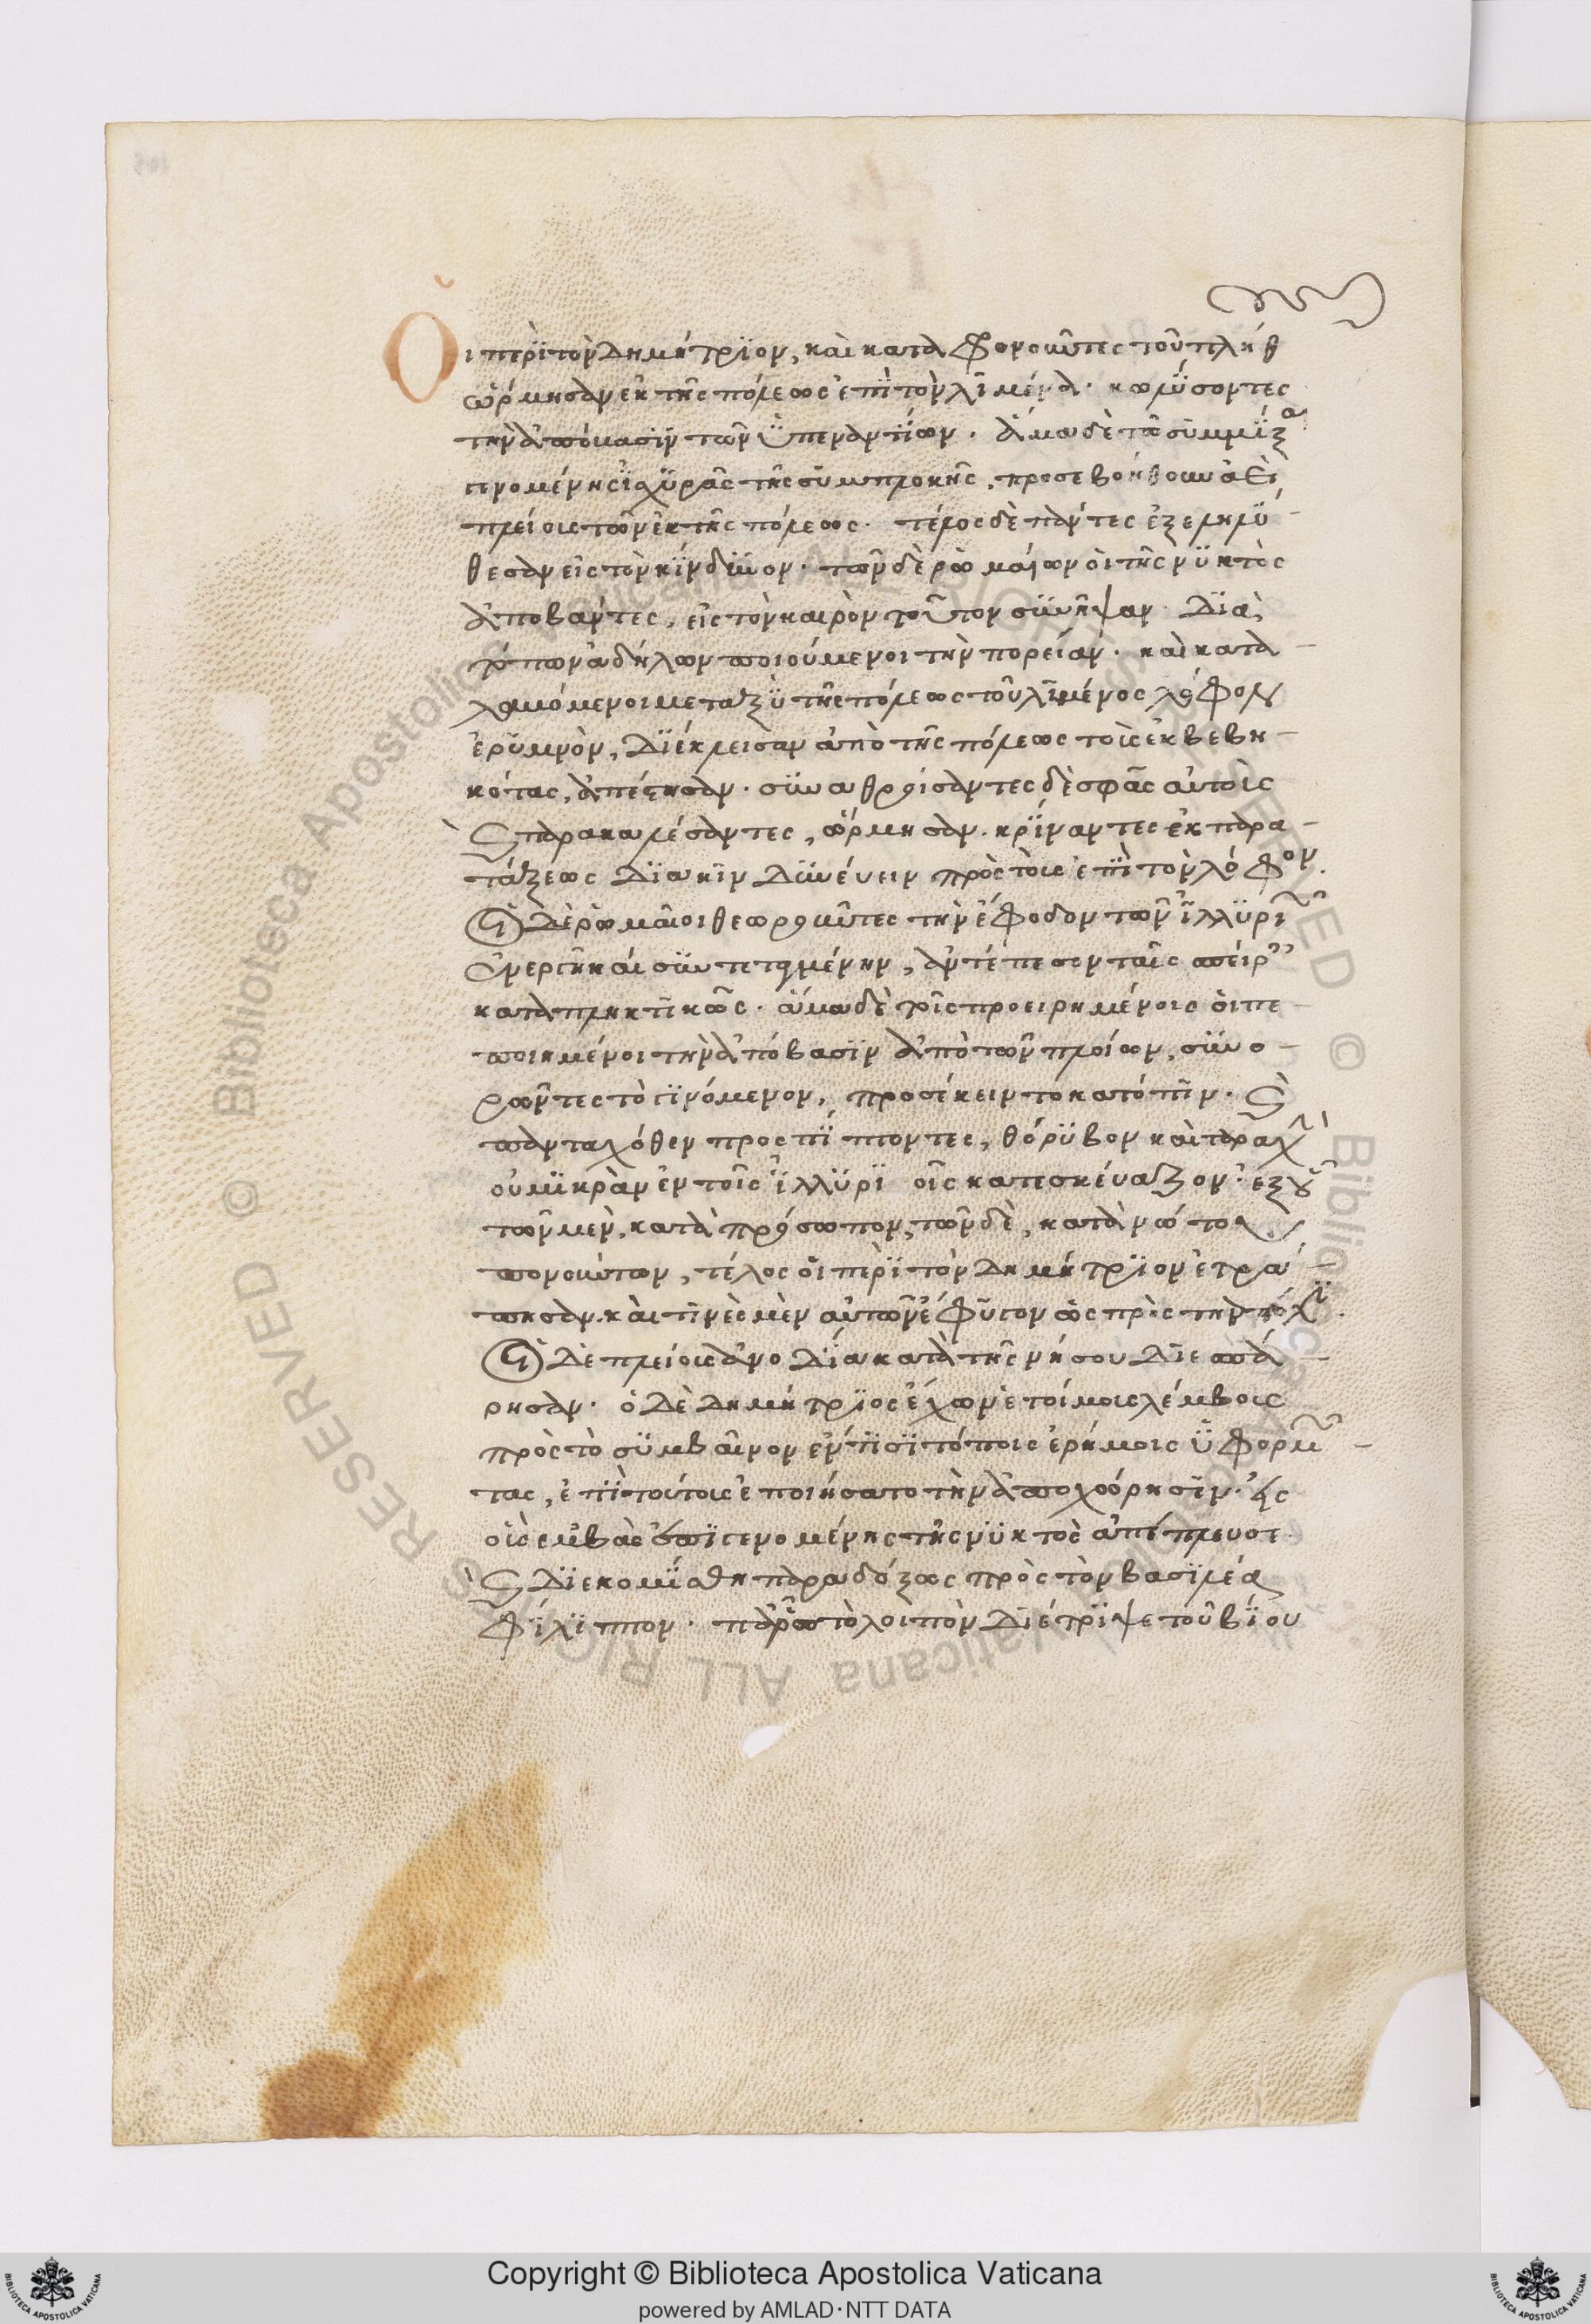 Οἱ περὶ τὸν Δημήτριον, καὶ καταφρονοῦντες τοῦ πλήθ
ὥρμησαν ἐκ τῆς πόλεως ἐπὶ τὸν λιμένα· κωλύσοντες
τὴν ἀπόβασιν τῶν ὑπεναντίων. ἅμα δὲ τῶ συμμίξα
γενομένης ἰσχυρᾶς τῆς συμπλοκῆς, προσεβοήθουν ἀεὶ
πλείους τῶν ἐκ τῆς πόλεως. τέλος δὲ πάντες ἐξεληλύ-
θεσαν εἰς τὸν κίνδυνον. τῶν δὲ ῥωμαίων οἱ τῆς νυκτὸς
ἀποβάντες, εἰς τὸν καιρὸν τοῦτον συνῆψαν. διὰ
τόπων ἀδήλων ποιούμενοι τὴν πορείαν. καὶ κατα-
λαβόμενοι μεταξὺ τῆς πόλεως τοῦ λιμένος λόφον
ἐρυμνὸν, διέκλεισαν ἀπὸ τῆς πόλεως τοὺς ἐκβεβη-
κότας, ἀπέστησαν. συναθροίσαντες δὲ σφᾶς αὐτοὺς
καὶ παρακαλέσαντες, ὥρμησαν. κρίναντες ἐκ παρα-
τάξεως διακινδυνεύειν πρὸς τοὺς ἐπὶ τὸν λόφον.
Οἱ δὲ ῥωμαῖοι θεωροῦντες τὴν ἔφοδον τῶν ἰλλυρι
ἐνεργῆ καὶ συντεταγμένην, ἀντέπεσον ταῖς σπείρ
καταπληκτικῶς. ἅμα δὲ τοῖς προειρημένοις οἱ πε-
ποιημένοι τὴν ἀπόβασιν ἀπὸ τῶν πλοίων, συνο-
ρῶντες τὸ γινόμενον, προσέκειντο κατόπιν. καὶ
πανταχόθεν προσπίπτοντες, θόρυβον καὶ ταραχ
οὐ μικρὰν ἐν τοῖς ἰλλυριοῖς κατεσκεύαζον. ἐξ οὗ
τῶν μὲν, κατὰ πρόσωπον, τῶν δὲ, κατὰ νώτου
πονούντων, τέλος οἱ περὶ τὸν Δημήτριον ἐτρά-
πησαν. καὶ τινὲς μὲν αὐτῶν ἔφυγον ὡς πρὸς τὴν πόλι.
Οἱ δὲ πλείους ἀνοδία κατὰ τῆς νήσου διεσπά-
ρησαν. ὁ δὲ Δημήτριος ἔχων ἑτοίμους λέμβους
πρὸς τὸ συμβαῖνον ἔν τισι τόποις ἐρήμοις ὑφορμ-
τας, ἐπὶ τούτοις ἐποιήσατο τὴν ἀποχώρησιν. εἰς
οὓς ἐμβὰς ἐπιγενομένης τῆς νυκτὸς ἀπέπλευσε
καὶ διεκομίσθη παραδόξως πρὸς τὸν βασιλέα
Φίλιππον. παρ' ᾧ τὸ λοιπὸν διέτριψε τοῦ βίου
Copyright © Biblioteca Apostolica Vaticana
powered by AMLAD·NTT DATA